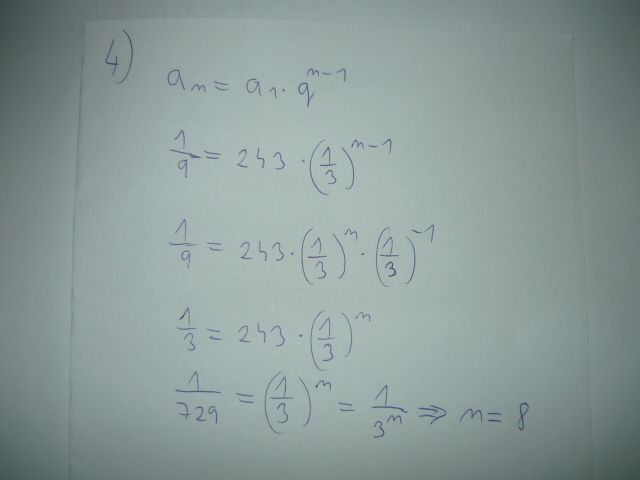 4)
aₙ = a₁ · qⁿ⁻¹
1/9 = 243 · (1/3)ⁿ⁻¹
1/9 = 243 · (1/3)ⁿ · (1/3)⁻¹
1/3 = 243 · (1/3)ⁿ
1/729 = (1/3)ⁿ = 1/3ⁿ ⇒ n = 8